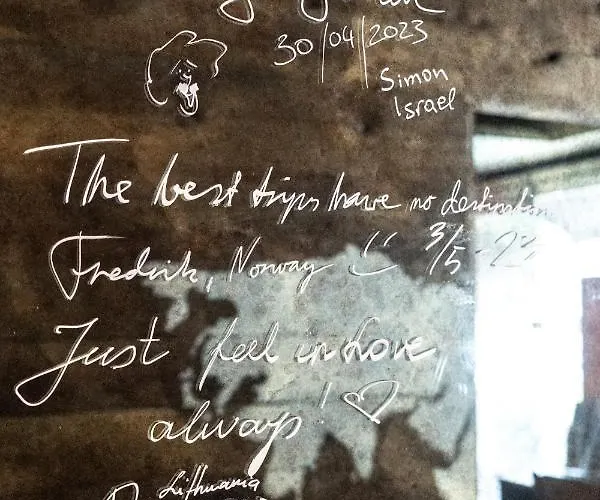 30/04/2023
Simon
Israel
The best trips have no destination
Fredrik, Norway 3/5-23
Just feel in Love
always!
Lithuania